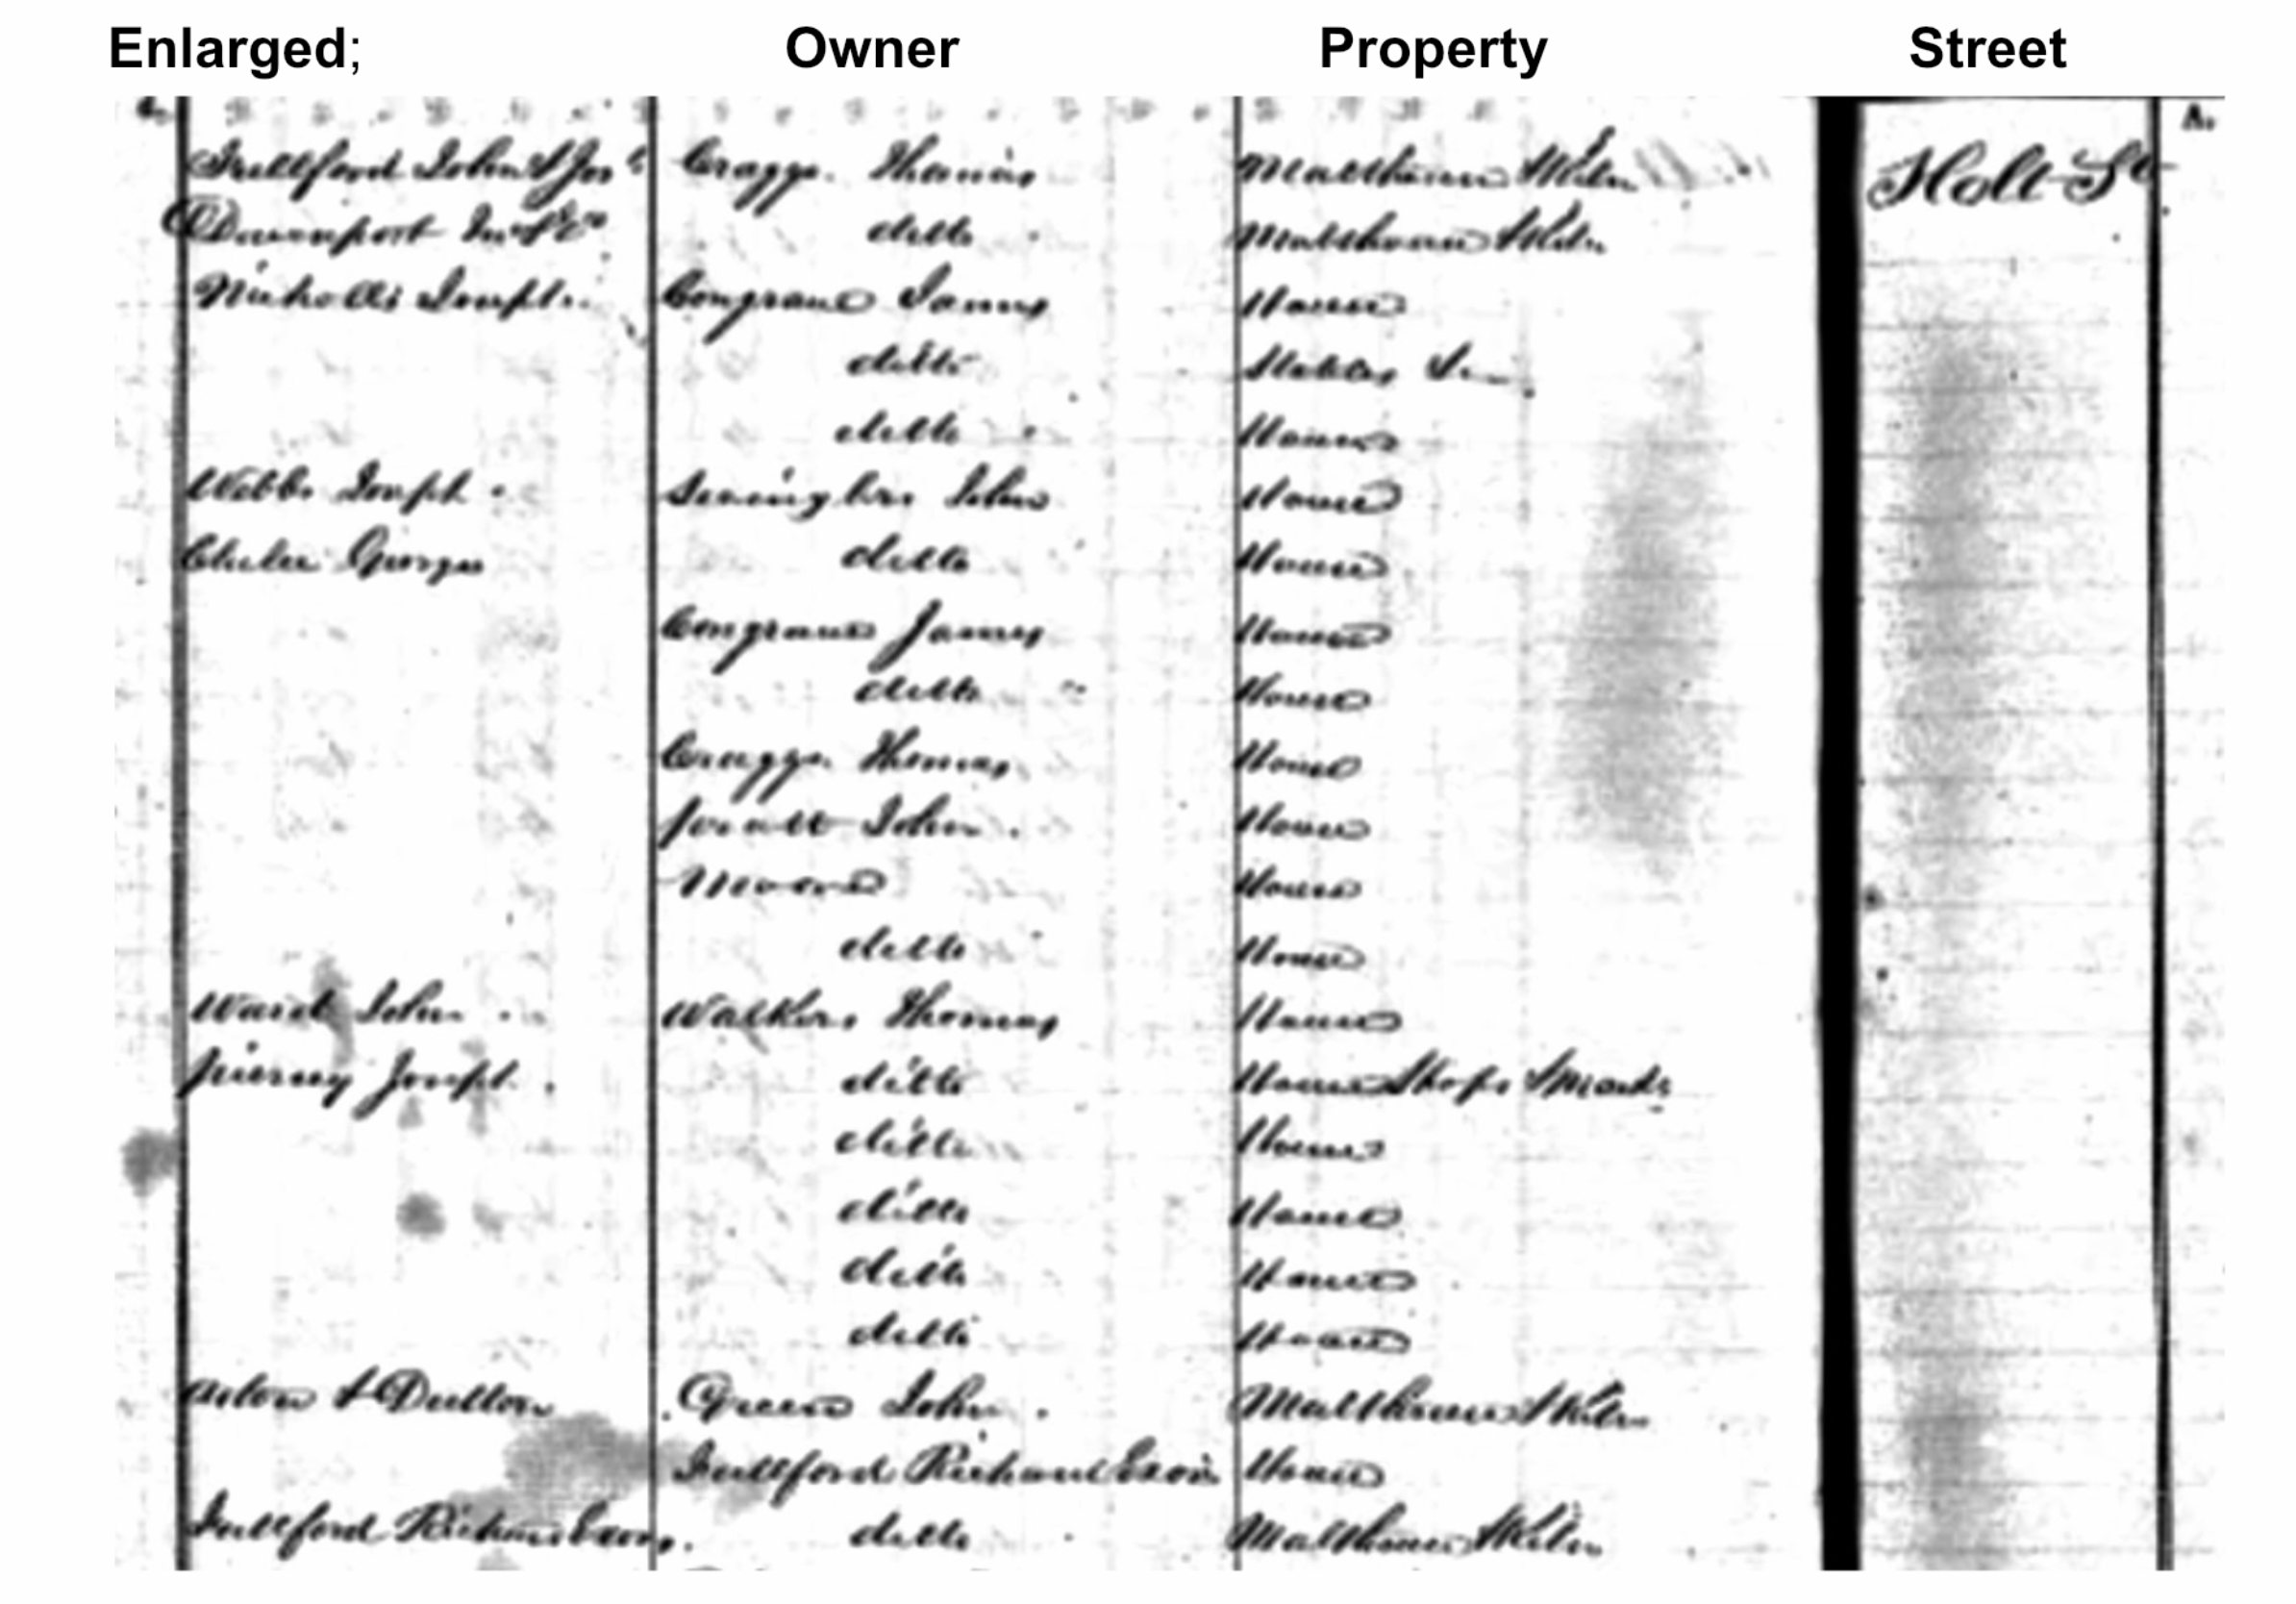 Enlarged; Owner Property Street
Fullford John & Jos Craggs Thomas Malthouse & Kiln Holt St
Davenport Jno & Co ditto Malthouse & Kiln
Nicholls Joseph Congrave James House
ditto Stables &c
ditto House
Webb Joseph John House
George ditto House
Congrave James House
ditto House
Craggs Thomas House
John House
Moore House
ditto House
Ward John Walker Thomas House
Joseph ditto House Shops &
ditto House
ditto House
ditto House
ditto House
Aston & Dutton Green John Malthouse & Kiln
Fullford Richard Exors House
Fullford Richard Exors ditto Malthouse & Kiln